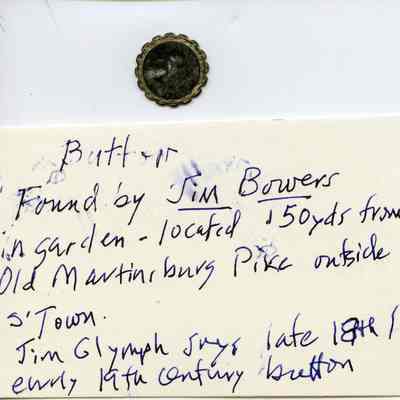 Button
Found by Jim Bowers
in garden - located 150yds from
Old Martinsburg Pike outside
S'Town.
Jim Glymph says late 18th /
early 19th century button